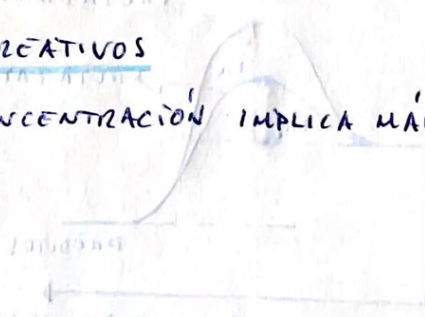 REATIVOS
NCENTRACIÓN IMPLICA MÁ